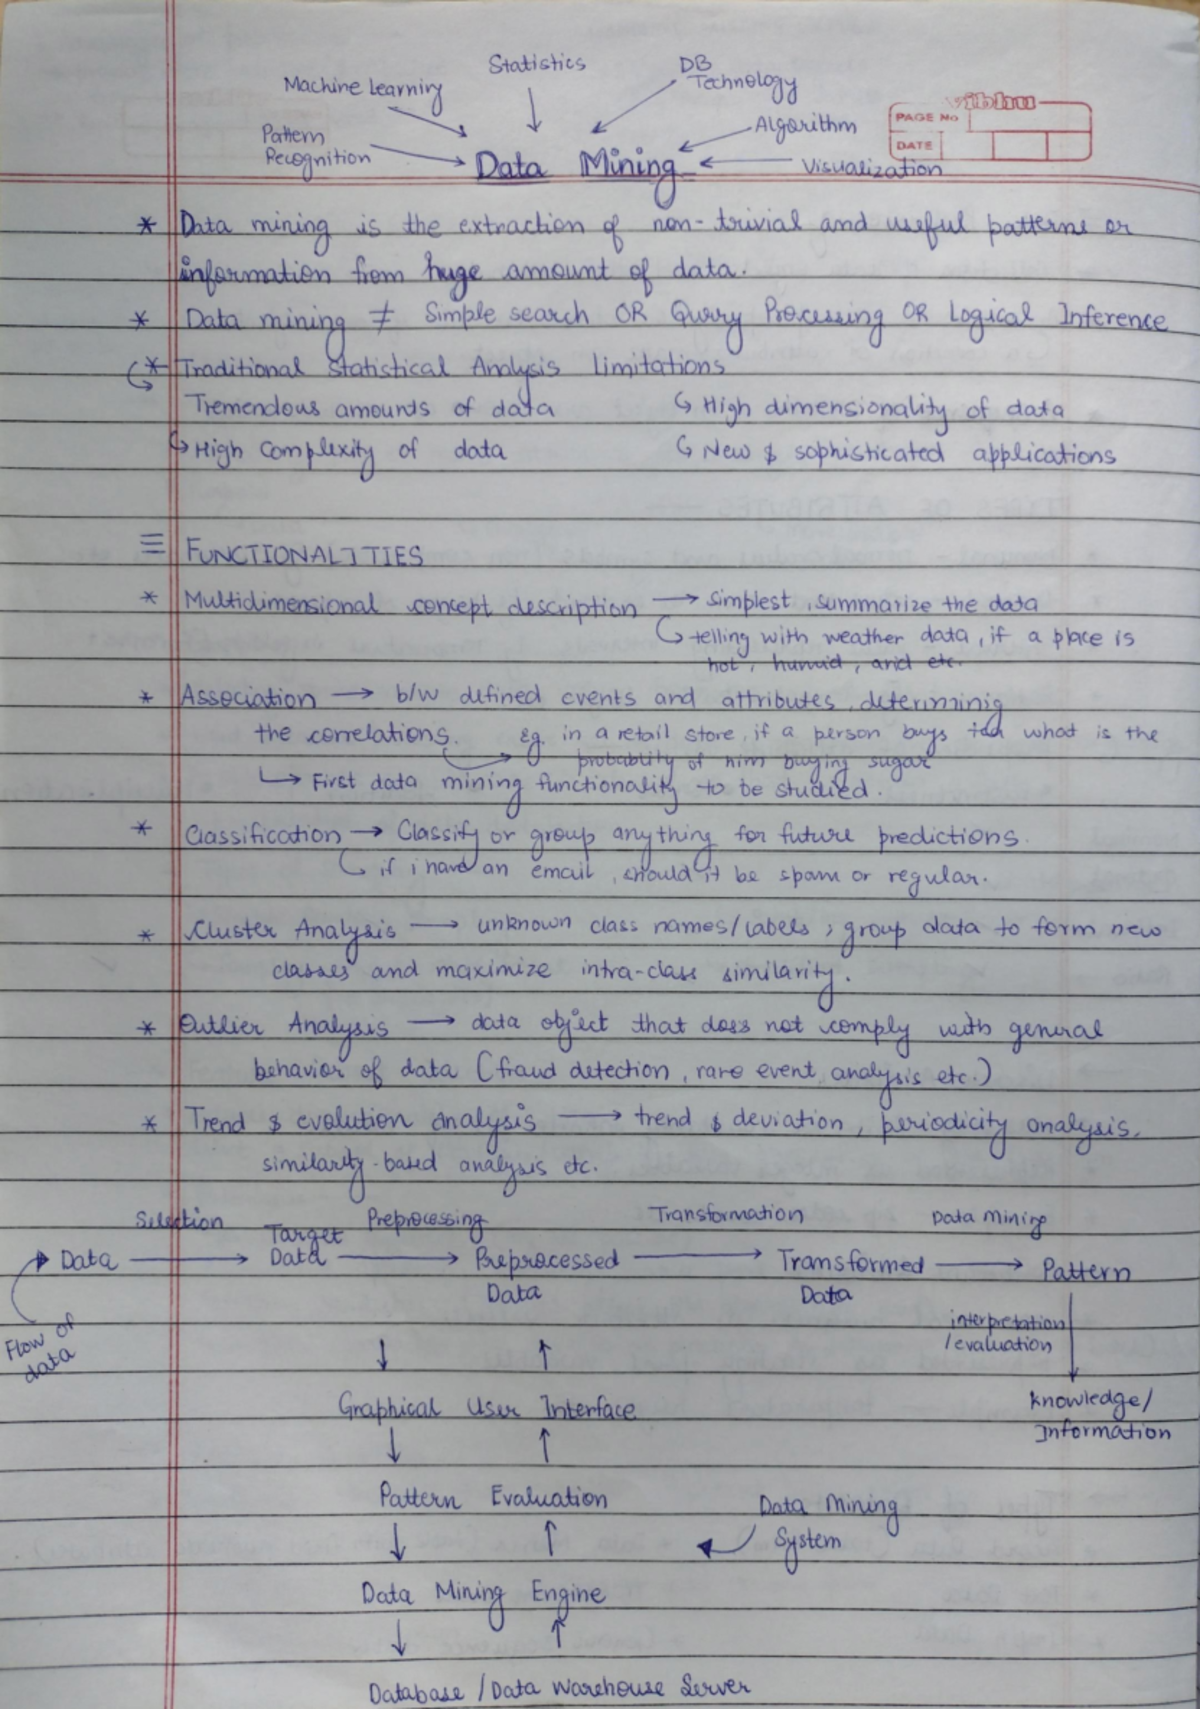 Statistics
DB
Technology
Machine Learning
vibhu
PAGE No
DATE
Algorithm
Pattern
Recognition
Data Mining
Visualization
* Data mining is the extraction of non-trivial and useful patterns or
information from huge amount of data.
* Data mining ≠ Simple search OR Query Processing OR Logical Inference
* Traditional Statistical Analysis limitations
Tremendous amounts of data ↳ High dimensionality of data
↳ High Complexity of data ↳ New & sophisticated applications
≡ FUNCTIONALITIES
* Multidimensional concept description → simplest, summarize the data
↳ telling with weather data, if a place is
hot, humid, arid etc.
* Association → b/w defined events and attributes, determinig
the correlations. eg. in a retail store, if a person buys tea what is the
probablity of him buying sugar
↳ First data mining functionality to be studied.
* Classification → Classify or group anything for future predictions.
↳ if i have an email, should it be spam or regular.
* Cluster Analysis → unknown class names/labels; group data to form new
classes and maximize intra-class similarity.
* Outlier Analysis → data object that does not comply with general
behavior of data (fraud detection, rare event analysis etc.)
* Trend & evolution analysis → trend & deviation, periodicity analysis,
similarity-based analysis etc.
Selection Preprocessing Transformation Data Mining
Data → Target Data → Preprocessed Data → Transformed Data → Pattern
Flow of
data
interpretation
/evaluation
↓ ↑
Graphical User Interface
Knowledge/
Information
↓ ↑
Pattern Evaluation
Data Mining
System
↓ ↑
Data Mining Engine
↓ ↑
Database / Data Warehouse Server